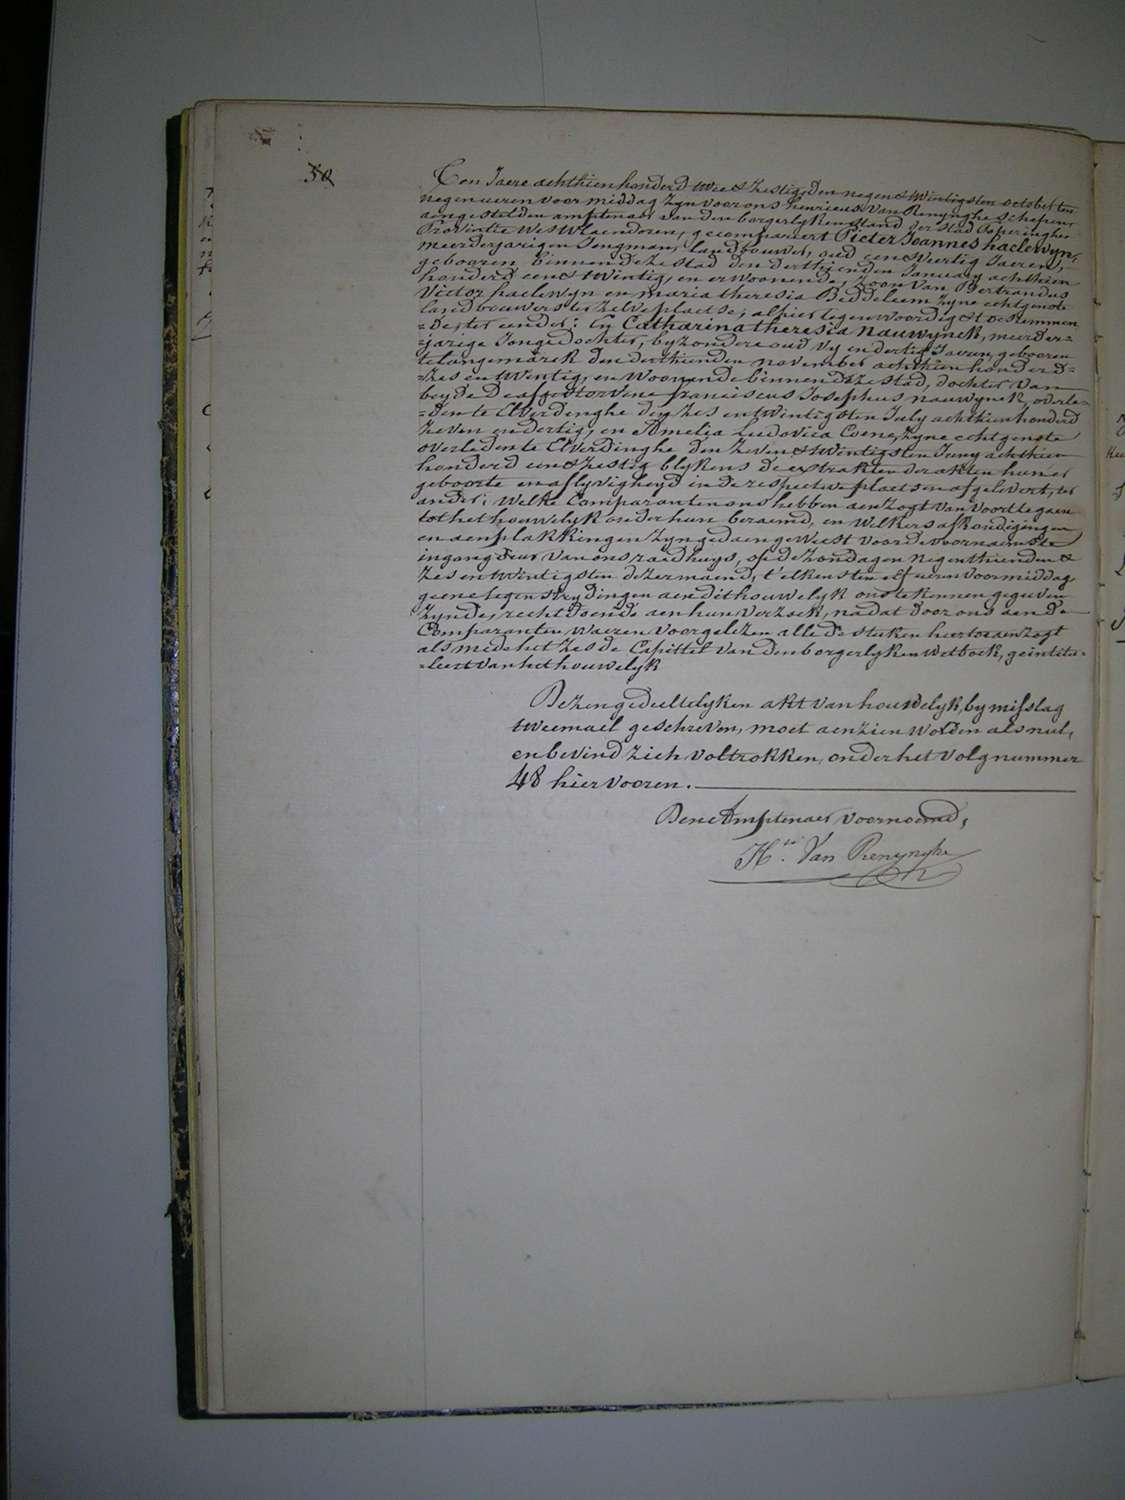 50
Den Jaere achthien honderd twee & Zestig den negen & twintigsten october ten
negen ueren voormiddag zyn voor ons henricus Van Renynghe Schepen,
aengestelden amptenaer van den borgerlyken stand der stad Poperinghe
Provintie West Vlaenderen, gecompareert Pieter Joannes haelewyn,
meerderjarigen Jongman, landbouwer, oud een & veertig Jaeren,
gebooren binnen deze stad den derthienden January achthien
honderd een & twintig, en er woonende, Zoon van Bertrandus
Victor haelewyn en maria theresia Beddeleem Zyne echtgenote
landbouwers ter Zelve plaetse; alhier tegenwoordig & toestemmen
=de, ter eender: En Catharina theresia nauwynck, meerder=
=jarige Jonge dochter, byzondere oud Vyf en dertig Jaeren, gebooren
te langemarck den derthienden november achthien honderd=
=Zes en twintig, en woonende binnen deze stad, dochter van
beyde de afgestorvene franciscus Josephus nauwynck, overle=
=den te Elverdinghe den Zes en twintigsten July achthien honderd
Zeven en dertig, en Amelia Ludovica Coene, Zyne echtgenote
overleden te Elverdinghe den Zeven & twintigsten Juny achthien
honderd een & Zestig blykens de extrakten der akten hunner
geboorte en aflyvigheyd in de respective plaetsen afgelevert, ter
ander; Welke Comparanten ons hebben aenzogt van voort te gaen
tot het houwelyk onder hun beraemd, en welkers afkondigingen
en aenplakkingen zyn gedaen geweest voor de voornaemste
ingang deur van ons raedhuys, op de Zondagen negenthienden &
Zes en twintigsten dezer maend, t'elkens ten elf ueren voormiddag,
geene tegenstrydingen aen dit houwelyk ons te kennen gegeven
zynde, recht doende aen hun verzoek, nadat door ons aen de
Comparanten waeren voorgelezen alle de stuken hiertoe aenzogt
als mede het Zesde Capittel van den borgerlyken wetboek, geintitu=
=leert van het houwelyk
Dezen gedeeltelyken akt van houwelyk, by misslag
tweemael geschreven, moet aenzien worden als nul,
en bevind zich voltrokken, onder het volgnummer
48 hier vooren.
Den Amptenaer voornoemd,
H.ri Van Renynghe